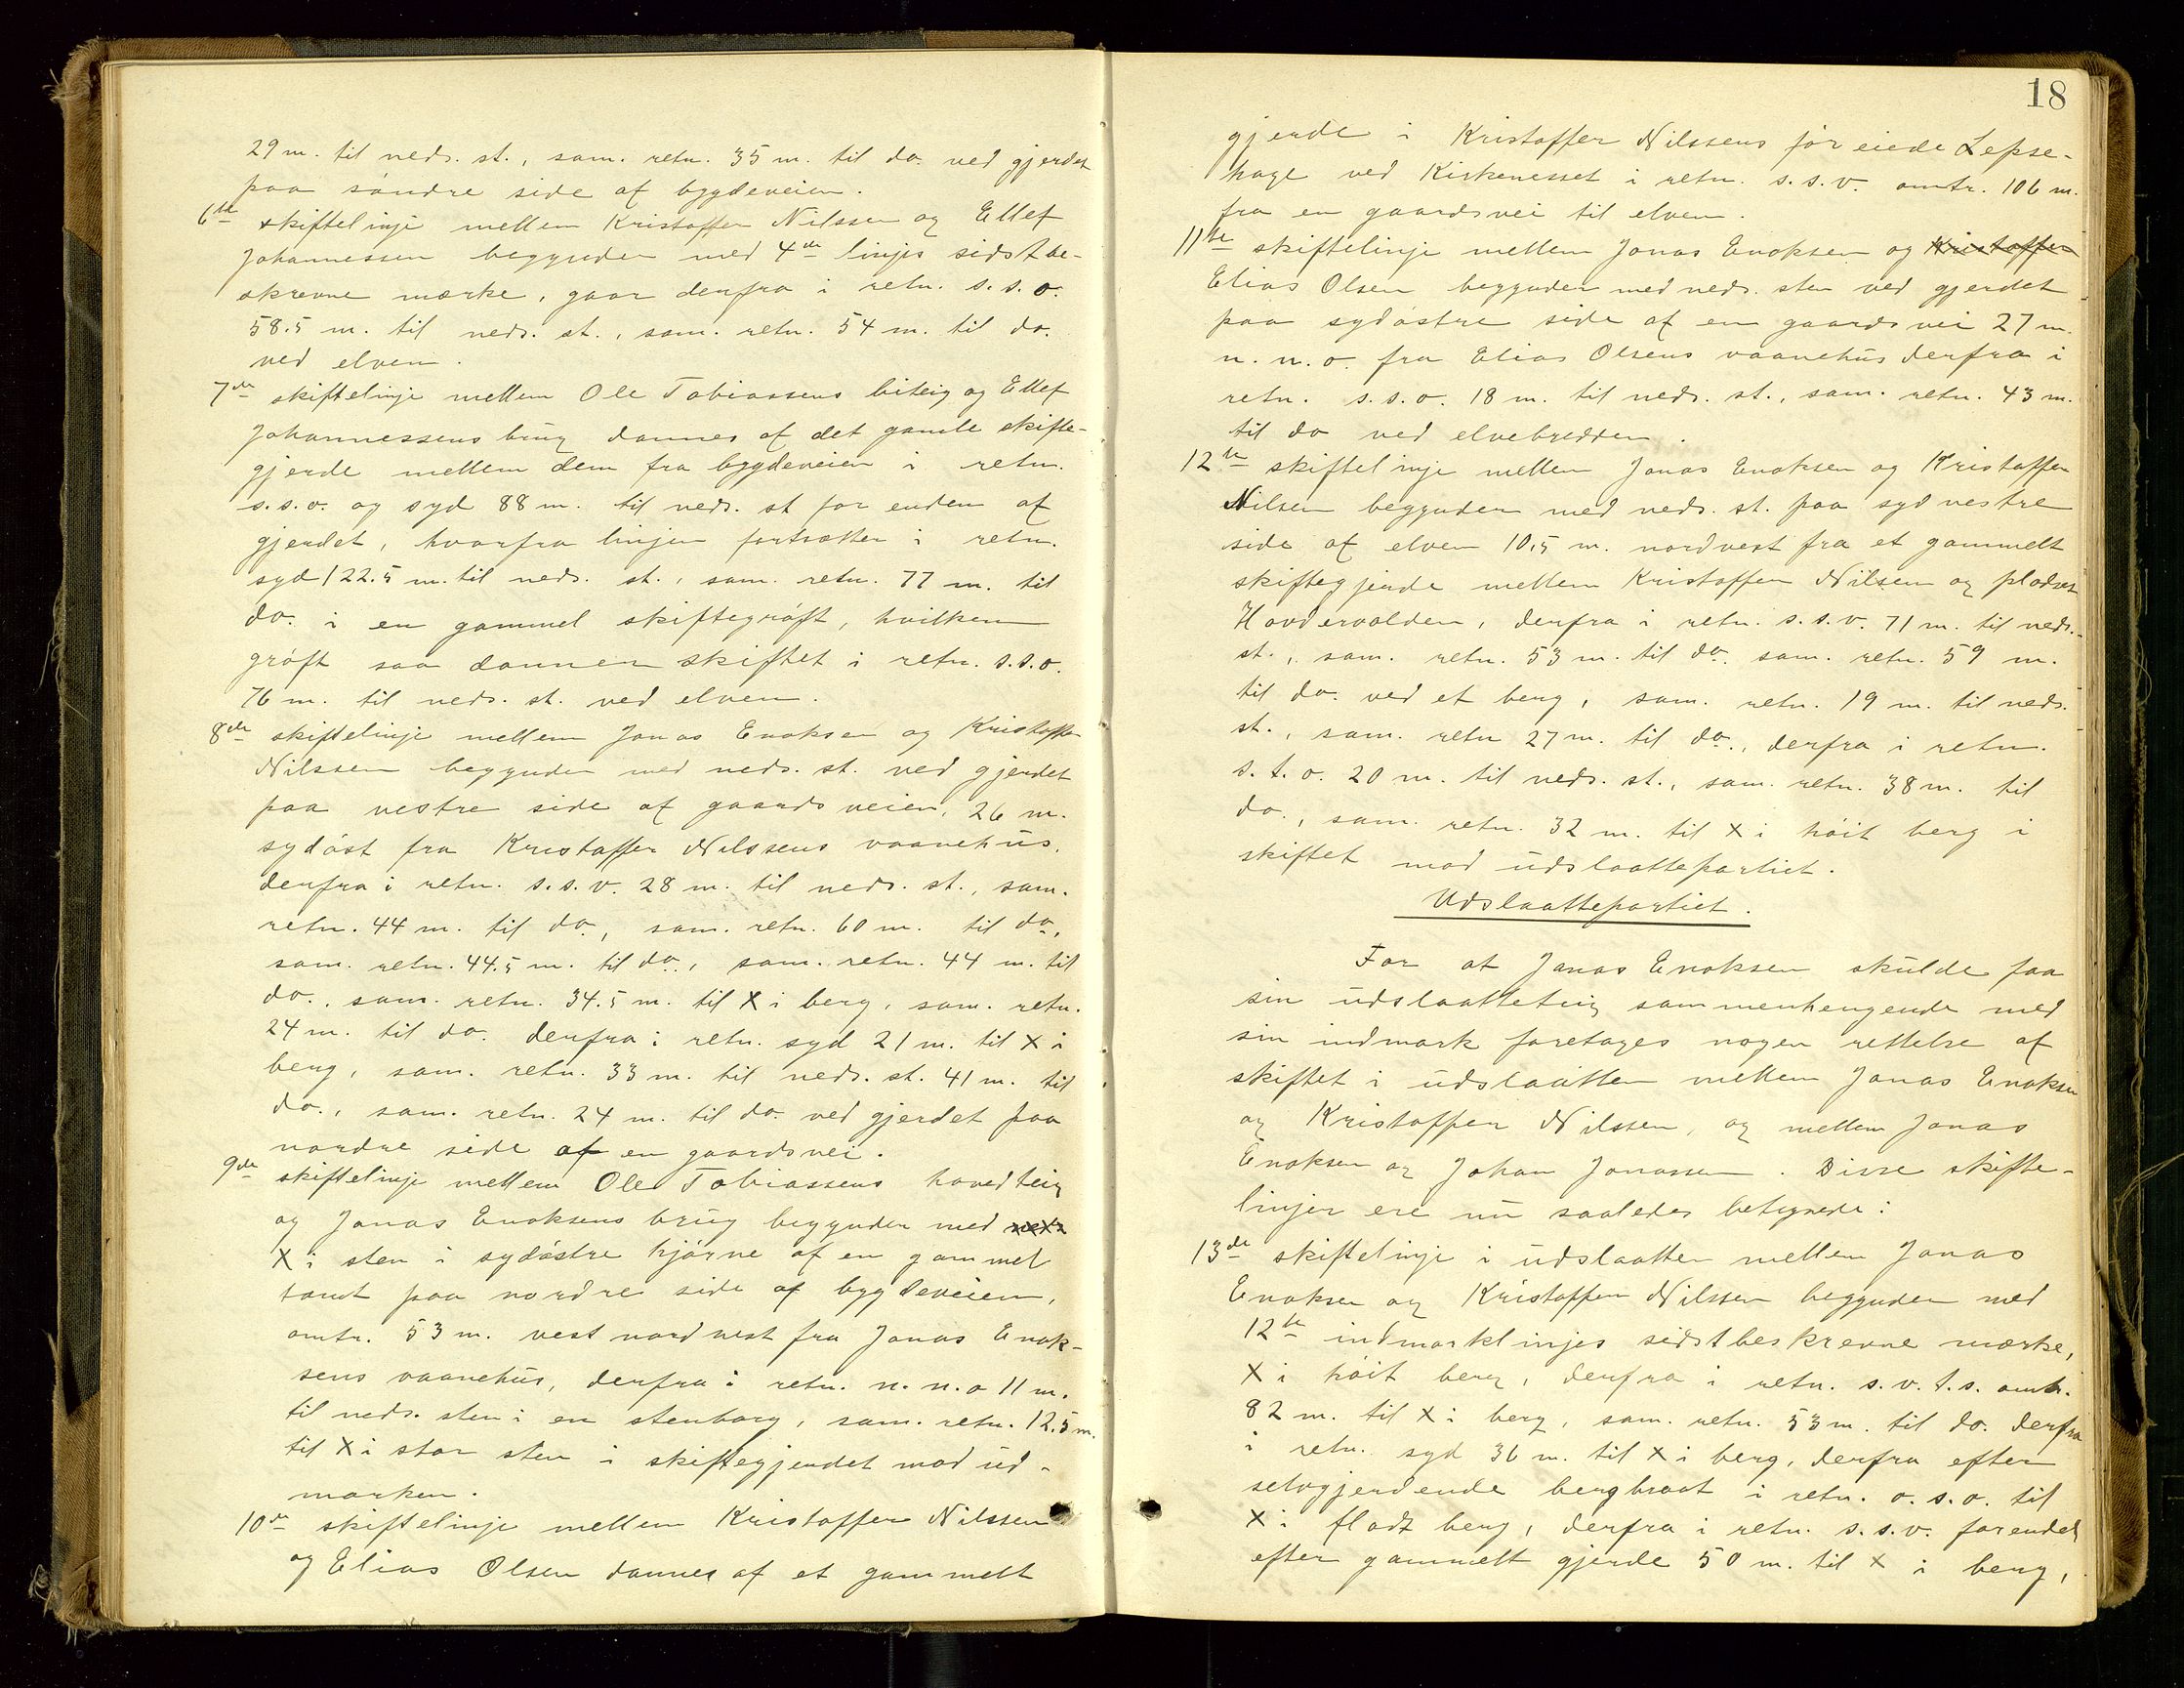 29 m. til neds. st., sam. retn. 35 m. til do. ved gjerdet
paa søndre side af bygdeveien.
6te skiftelinje mellem Kristoffer Nilssen og Ellef
Johannessen begynder med 4de linjes sidst be-
skrevne mærke, gaar derfra i retn. s.s.o.
58.5 m. til neds. st., sam. retn. 54 m. til do.
ved elven.
7de skiftelinje mellem Ole Tobiassens biteig og Ellef
Johannessens brug dannes af det gamle skifte-
gjerde mellem dem fra bygdeveien i retn.
s.s.o. og syd 88 m. til neds. st for enden af
gjerdet, hvorfra linjen fortsætter i retn.
syd 122.5 m. til neds. st., sam. retn. 77 m. til
do. i en gammel skiftegrøft, hvilken
grøft saa danner skiftet i retn. s.s.o.
76 m. til neds. st. ved elven.
8de skiftelinje mellem Jonas Enoksen og Kristoffer
Nilssen begynder med neds. st. ved gjerdet
paa vestre side af gaardsveien, 26 m.
sydøst fra Kristoffer Nilssens vaanehus.
derfra i retn. s.s.v. 28 m. til neds. st., sam.
retn. 44 m. til do., sam. retn. 60 m. til do.,
sam. retn. 44.5 m. til do., sam. retn. 44 m. til
do., sam. retn. 34.5 m. til X i berg, sam. retn.
24 m. til do. derfra i retn. syd 21 m. til X i
berg, sam. retn. 33 m. til neds. st. 41 m. til
do., sam. retn. 24 m. til do. ved gjerdet paa
nordre side af en gaardsvei.
9de skiftelinje mellem Ole Tobiassens hovedteig
og Jonas Enoksens brug begynder med
X i sten i sydøstre hjørne af en gammel
tomt paa nordre side af bygdeveien,
omtr. 53 m. vest nordvest fra Jonas Enok-
sens vaanehus, derfra i retn. n.n.o 11 m.
til neds. sten i en stenborg, sam. retn. 12.5 m.
til X i stor sten i skiftegjerdet mod ud-
marken.
10de skiftelinje mellem Kristoffer Nilssen
og Elias Olsen dannes af et gammelt
18
gjerde i Kristoffer Nilssens før eiede Lepse-
hage ved Kirkenesset i retn. s.s.v. omtr. 106 m.
fra en gaardsvei til elven.
11te skiftelinje mellem Jonas Enoksen og Kristoffer
Elias Olsen begynder med neds. sten ved gjerdet
paa sydøstre side af en gaardsvei 27 m.
n.n.o. fra Elias Olsens vaanehus derfra i
retn. s.s.o. 18 m. til neds. st., sam. retn. 43 m.
til do ved elvebredden.
12te skiftelinje mellem Jonas Enoksen og Kristoffer
Nilsen begynder med neds. st. paa sydvestre
side af elven 10,5 m. nordvest fra et gammelt
skiftegjerde mellem Kristoffer Nilsen og pladset
Hovdervolden, derfra i retn. s.s.v. 71 m. til neds.
st., sam. retn. 53 m. til do. sam. retn. 59 m.
til do. ved et berg, sam. retn. 19 m. til neds.
st., sam. retn 27 m. til do., derfra i retn.
s.t.o. 20 m. til neds. st., sam. retn. 38 m. til
do., sam. retn. 32 m. til X i høit berg i
skiftet mod udslaattepartiet.
Udslaattepartiet.
For at Jonas Enoksen skulde faa
sin udslaatteteig sammenhengende med
sin indmark foretages nogen rettelse af
skiftet i udslaatten mellem Jonas Enoksen
og Kristoffer Nilssen, og mellem Jonas
Enoksen og Johan Jonassen. Disse skifte-
linjer ere nu saaledes betegnede:
13de skiftelinje i udslaatten mellem Jonas
Enoksen og Kristoffer Nilssen begynder med
12te indmarklinjes sidstbeskrevne mærke,
X i høit berg, derfra i retn. s.v.t.s. omtr.
82 m. til X i berg, sam. retn. 53 m. til do. derfra
i retn. syd 36 m. til X i berg, derfra efter
selvgjerdende bergbraat i retn. o.s.o. til
X i fladt berg, derfra i retn. s.s.v. forendel
efter gammelt gjerde 50 m. til X i berg,